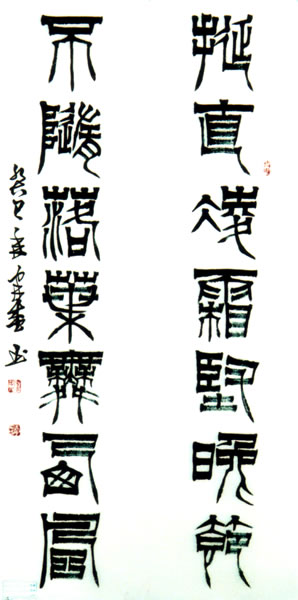 挺直凌霜堅晚節
不隨落葉舞西風
癸巳
書